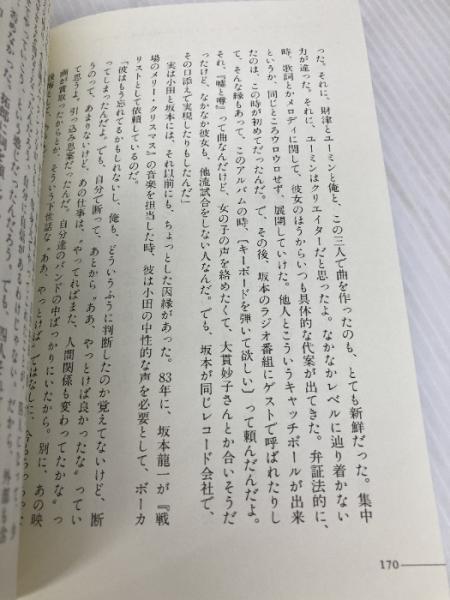 った。それに、財津とユーミンと俺と、この三人で曲を作ったのも、とても新鮮だった。集中
力が違った。それに、ユーミンはクリエイターだと思ったよ。なかなかレベルに辿り着かない
時、歌詞とかメロディに関して、彼女のほうからいつも具体的な代案が出てきた。弁証法的に、
というか、同じところウロウロせず、展開していけた。他人とこういうキャッチボールが出来
たのは、この時が初めてだったんだ。で、その後、坂本のラジオ番組にゲストで呼ばれたりし
て、そんな縁もあって、このアルバムの時、〔キーボードを弾いて欲しい〕って頼んだんだよ。
それ、『嘘と噂』って曲なんだけど、女の子の声を絡めたくて、大貫妙子さんとか合いそうだ
ったけど、なかなか彼女も、他流試合をしない人なんだ。でも、坂本が同じレコード会社で、
その口添えで実現したりもしたんだ」
実は小田と坂本には、それ以前にも、ちょっとした因縁があった。83年に、坂本龍一が『戦
場のメリー・クリスマス』の音楽を担当した時、彼は小田の中性的な声を必要として、ボーカ
リストとして依頼しているのだ。
「彼はもう忘れてるかもしれないし、俺も、どういうふうに判断したのか覚えてないけど、断
ってしまったんだよ。でも、自分で断って、あとから〝ああ、やっとけば良かったな〟ってい
うのって、あまりないけど、あの仕事は、〝やってればまた、人間関係も変わってたかな〟っ
て思うよ。引っ込み思案だったんだ。自分達のバンドの中ばっかりにいたから。別に、あの映
画が賞取ったからとか、そういう下世話な〝ああ、やっとけば〟ではなしに、
170